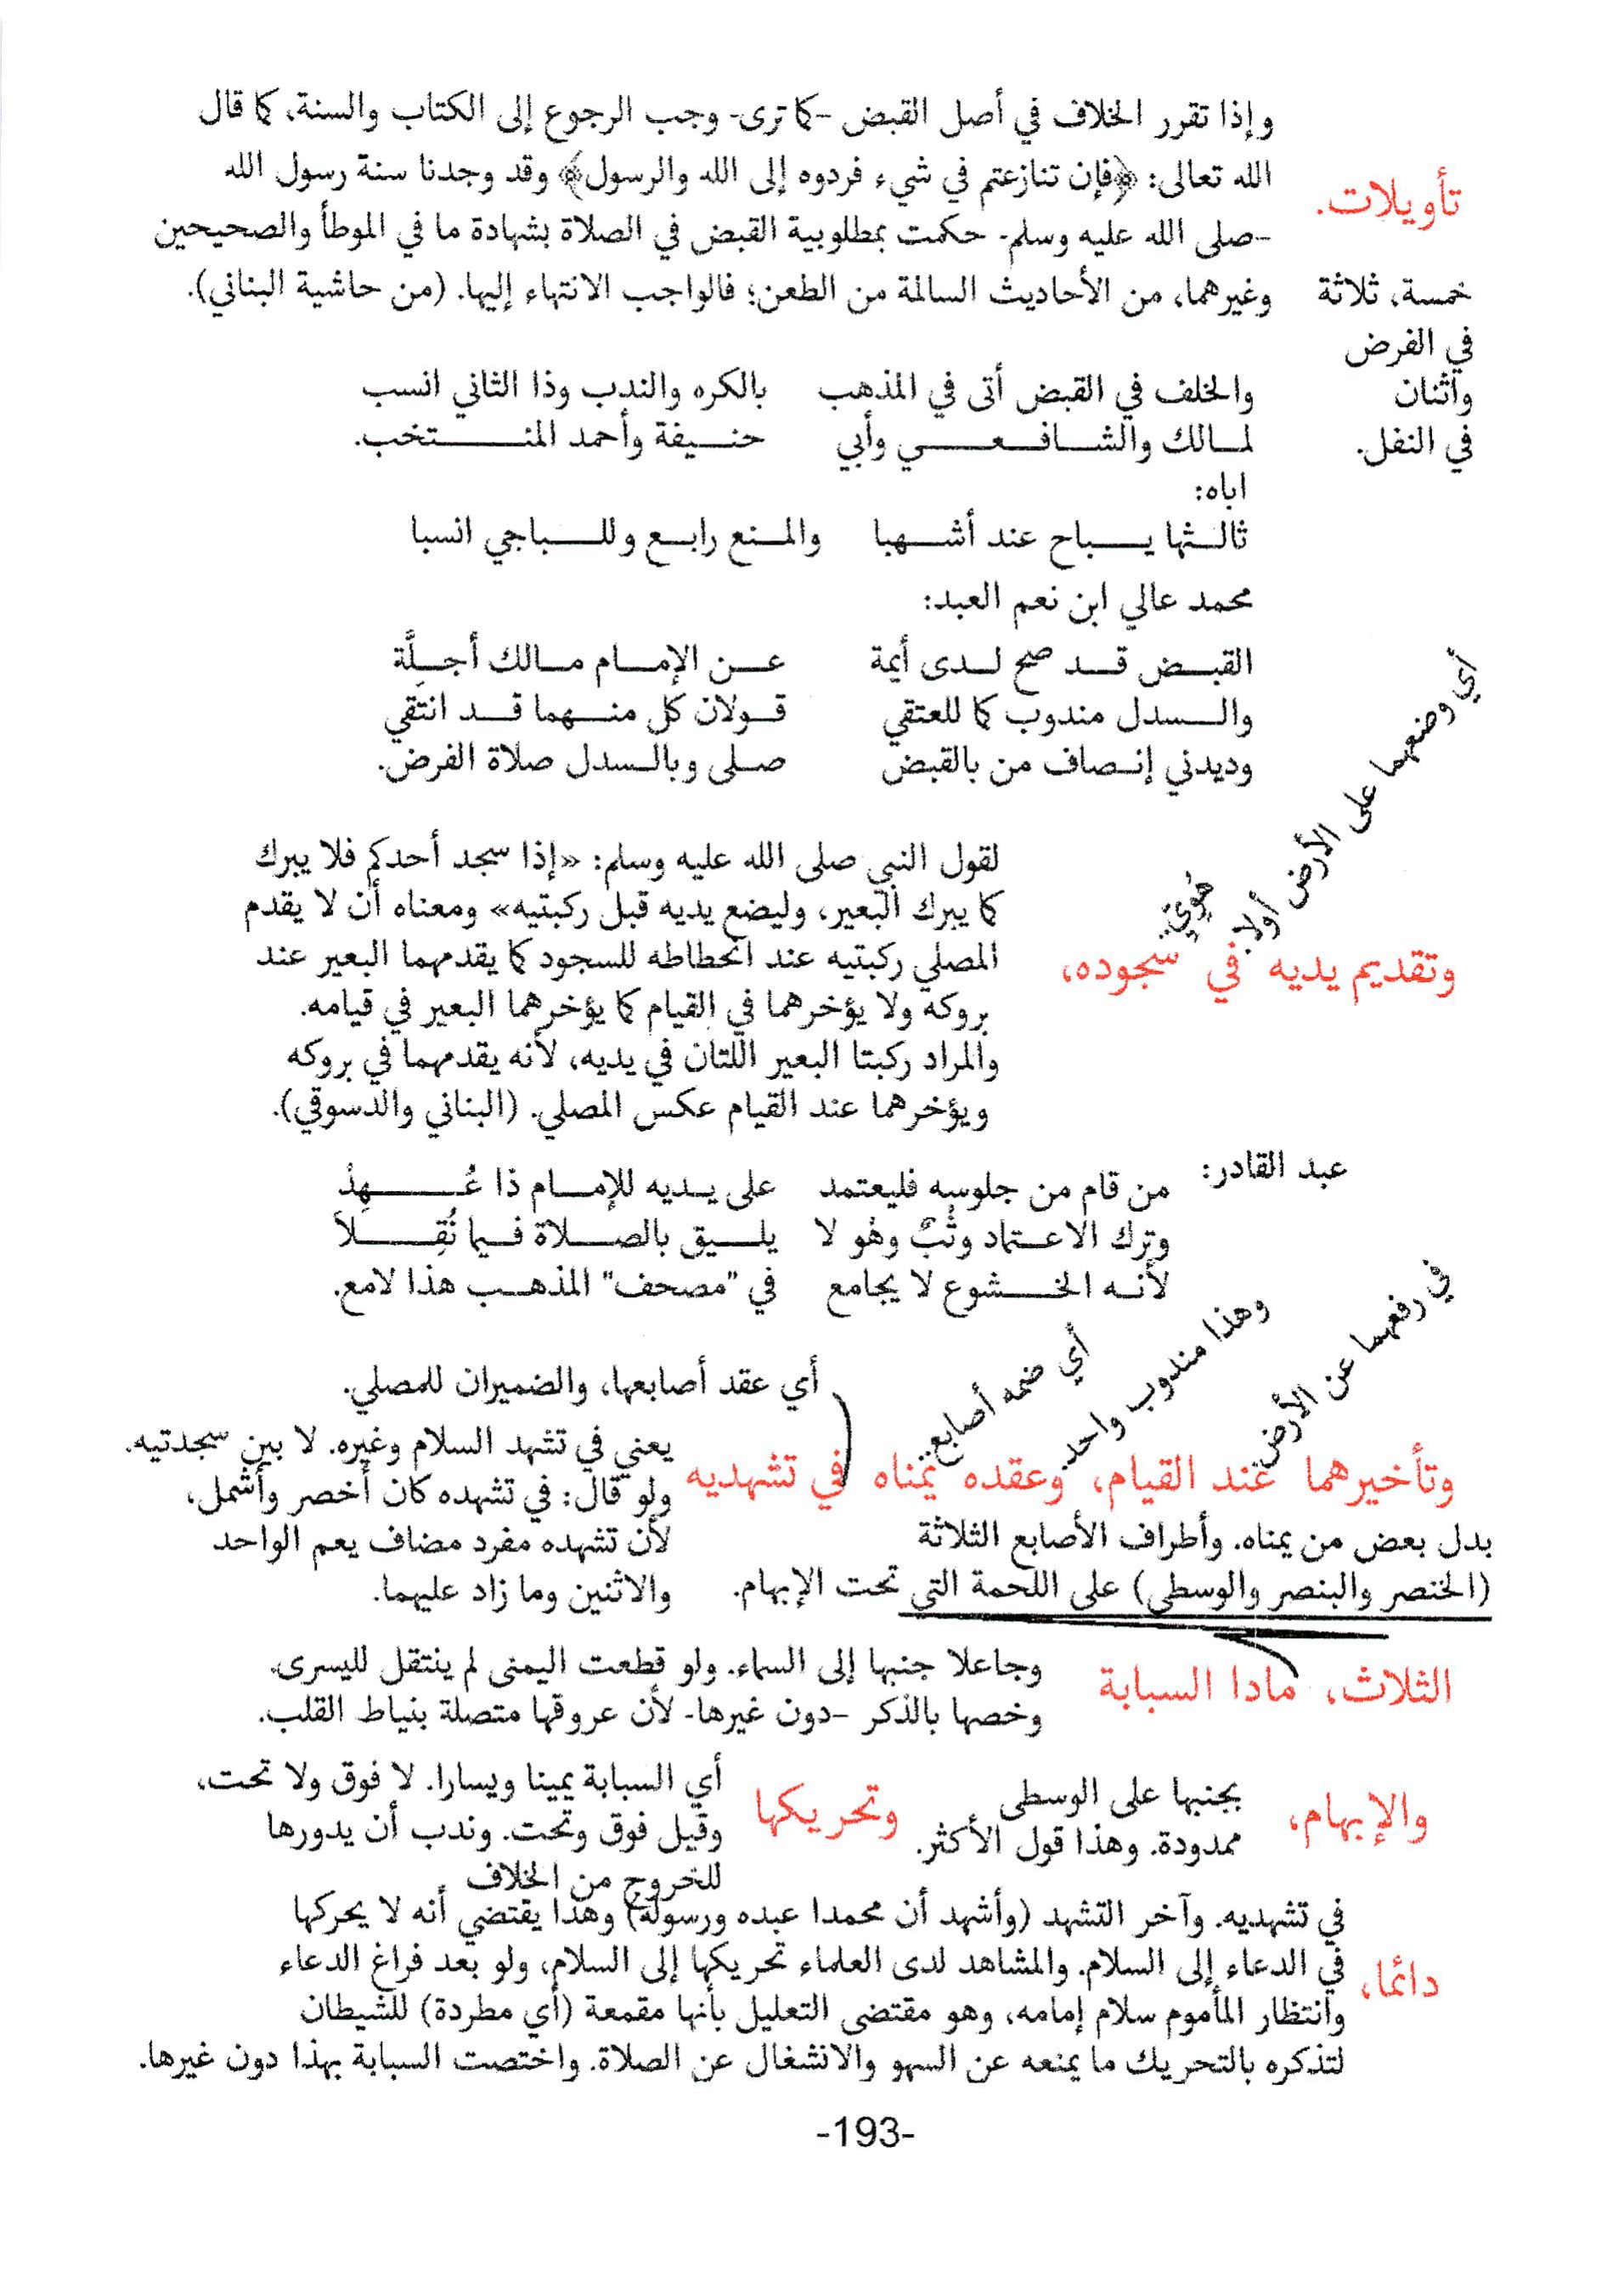 وإذا تقرر الخلاف في أصل القبض -كما ترى- وجب الرجوع إلى الكتاب والسنة، كما قال
تأويلات.
الله تعالى: ﴿فإن تنازعتم في شيء فردوه إلى الله والرسول﴾ وقد وجدنا سنة رسول الله
-صلى الله عليه وسلم- حكمت بمطلوبية القبض في الصلاة بشهادة ما في الموطأ والصحيحين
وغيرهما، من الأحاديث السالمة من الطعن؛ فالواجب الانتهاء إليها. (من حاشية البناني).
خمسة، ثلاثة
في الفرض
واثنان
في النفل.
والخلف في القبض أتى في المذهب بالكره والندب وذا الثاني انسب
لمالك والشافعي وأبي حنيفة وأحمد المنتخب.
اباه:
ثالثها يباح عند أشهبا والمنع رابع وللباجي انسبا
محمد عالي ابن نعم العبد:
القبض قد صح لدى أيمة عن الإمام مالك أجِلَّة
والسدل مندوب كما للعتقي قولان كل منهما قد انتقي
وديدني إنصاف من بالقبض صلى وبالسدل صلاة الفرض.
أي وضعهما على الأرض أولا
هُوِيّ
وتقديم يديه في سجوده،
لقول النبي صلى الله عليه وسلم: «إذا سجد أحدكم فلا يبرك
كما يبرك البعير، وليضع يديه قبل ركبتيه» ومعناه أن لا يقدم
المصلي ركبتيه عند انحطاطه للسجود كما يقدمهما البعير عند
بروكه ولا يؤخرهما في القيام كما يؤخرهما البعير في قيامه.
والمراد ركبتا البعير اللتان في يديه، لأنه يقدمهما في بروكه
ويؤخرهما عند القيام عكس المصلي. (البناني والدسوقي).
عبد القادر:
من قام من جلوسه فليعتمد على يديه للإمام ذا عُهِدْ
وترك الاعتماد وثْبٌ وهْو لا يليق بالصلاة فيما نُقِلاَ
لأنه الخشوع لا يجامع في "مصحف" المذهب هذا لامع.
في رفعهما عن الأرض
وهذا مندوب واحد.
أي ضمه أصابع
أي عقد أصابعها، والضميران للمصلي.
وتأخيرهما عند القيام، وعقده يمناه في تشهديه
يعني في تشهد السلام وغيره. لا بين سجدتيه.
ولو قال: في تشهده كان أخصر وأشمل،
لأن تشهده مفرد مضاف يعم الواحد
والاثنين وما زاد عليهما.
بدل بعض من يمناه. وأطراف الأصابع الثلاثة
(الخنصر والبنصر والوسطى) على اللحمة التي تحت الإبهام.
الثلاث، مادا السبابة
وجاعلا جنبها إلى السماء. ولو قطعت اليمنى لم ينتقل لليسرى.
وخصها بالذكر -دون غيرها- لأن عروقها متصلة بنياط القلب.
والإبهام،
بجنبها على الوسطى
ممدودة. وهذا قول الأكثر.
وتحريكها
أي السبابة يمينا ويسارا. لا فوق ولا تحت،
وقيل فوق وتحت. وندب أن يدورها
للخروج من الخلاف
دائما،
في تشهديه. وآخر التشهد (وأشهد أن محمدا عبده ورسوله) وهذا يقتضي أنه لا يحركها
في الدعاء إلى السلام. والمشاهد لدى العلماء تحريكها إلى السلام، ولو بعد فراغ الدعاء
وانتظار المأموم سلام إمامه، وهو مقتضى التعليل بأنها مقمعة (أي مطردة) للشيطان
لتذكره بالتحريك ما يمنعه عن السهو والانشغال عن الصلاة. واختصت السبابة بهذا دون غيرها.
-193-